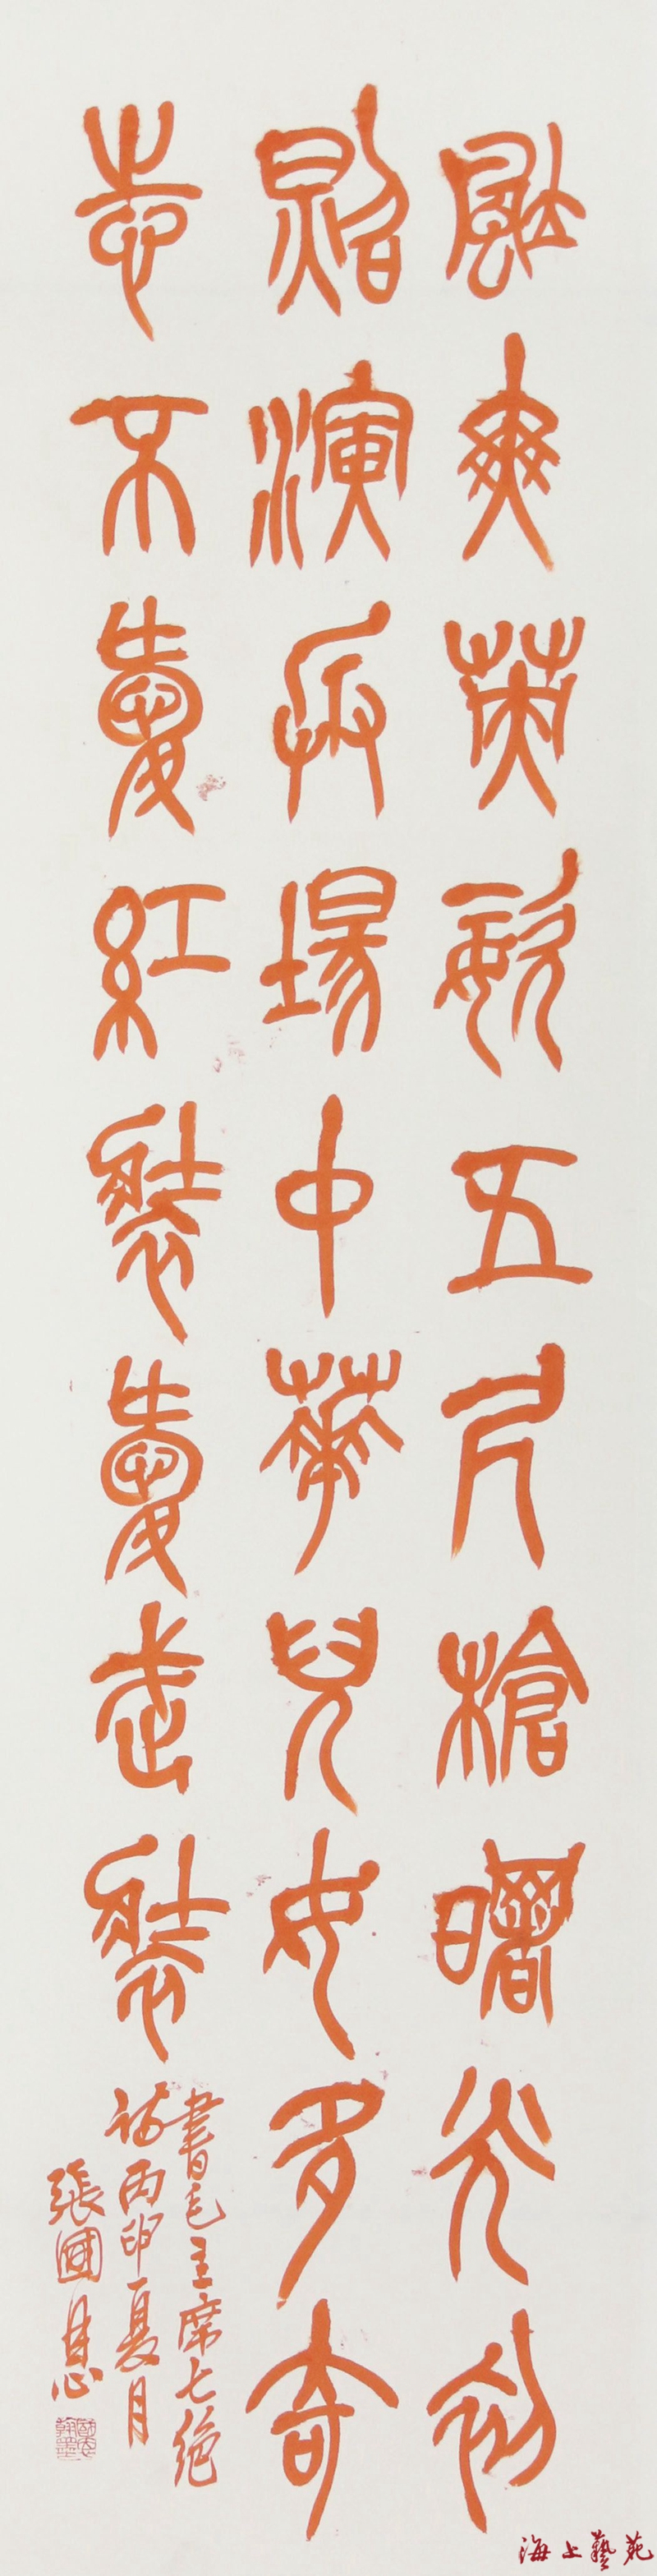 颯爽英姿五尺槍曙光初
照演兵場中華兒女多奇
志不愛紅裝愛武裝
書毛主席七絕
詩丙申夏月
張國恩
海上藝苑